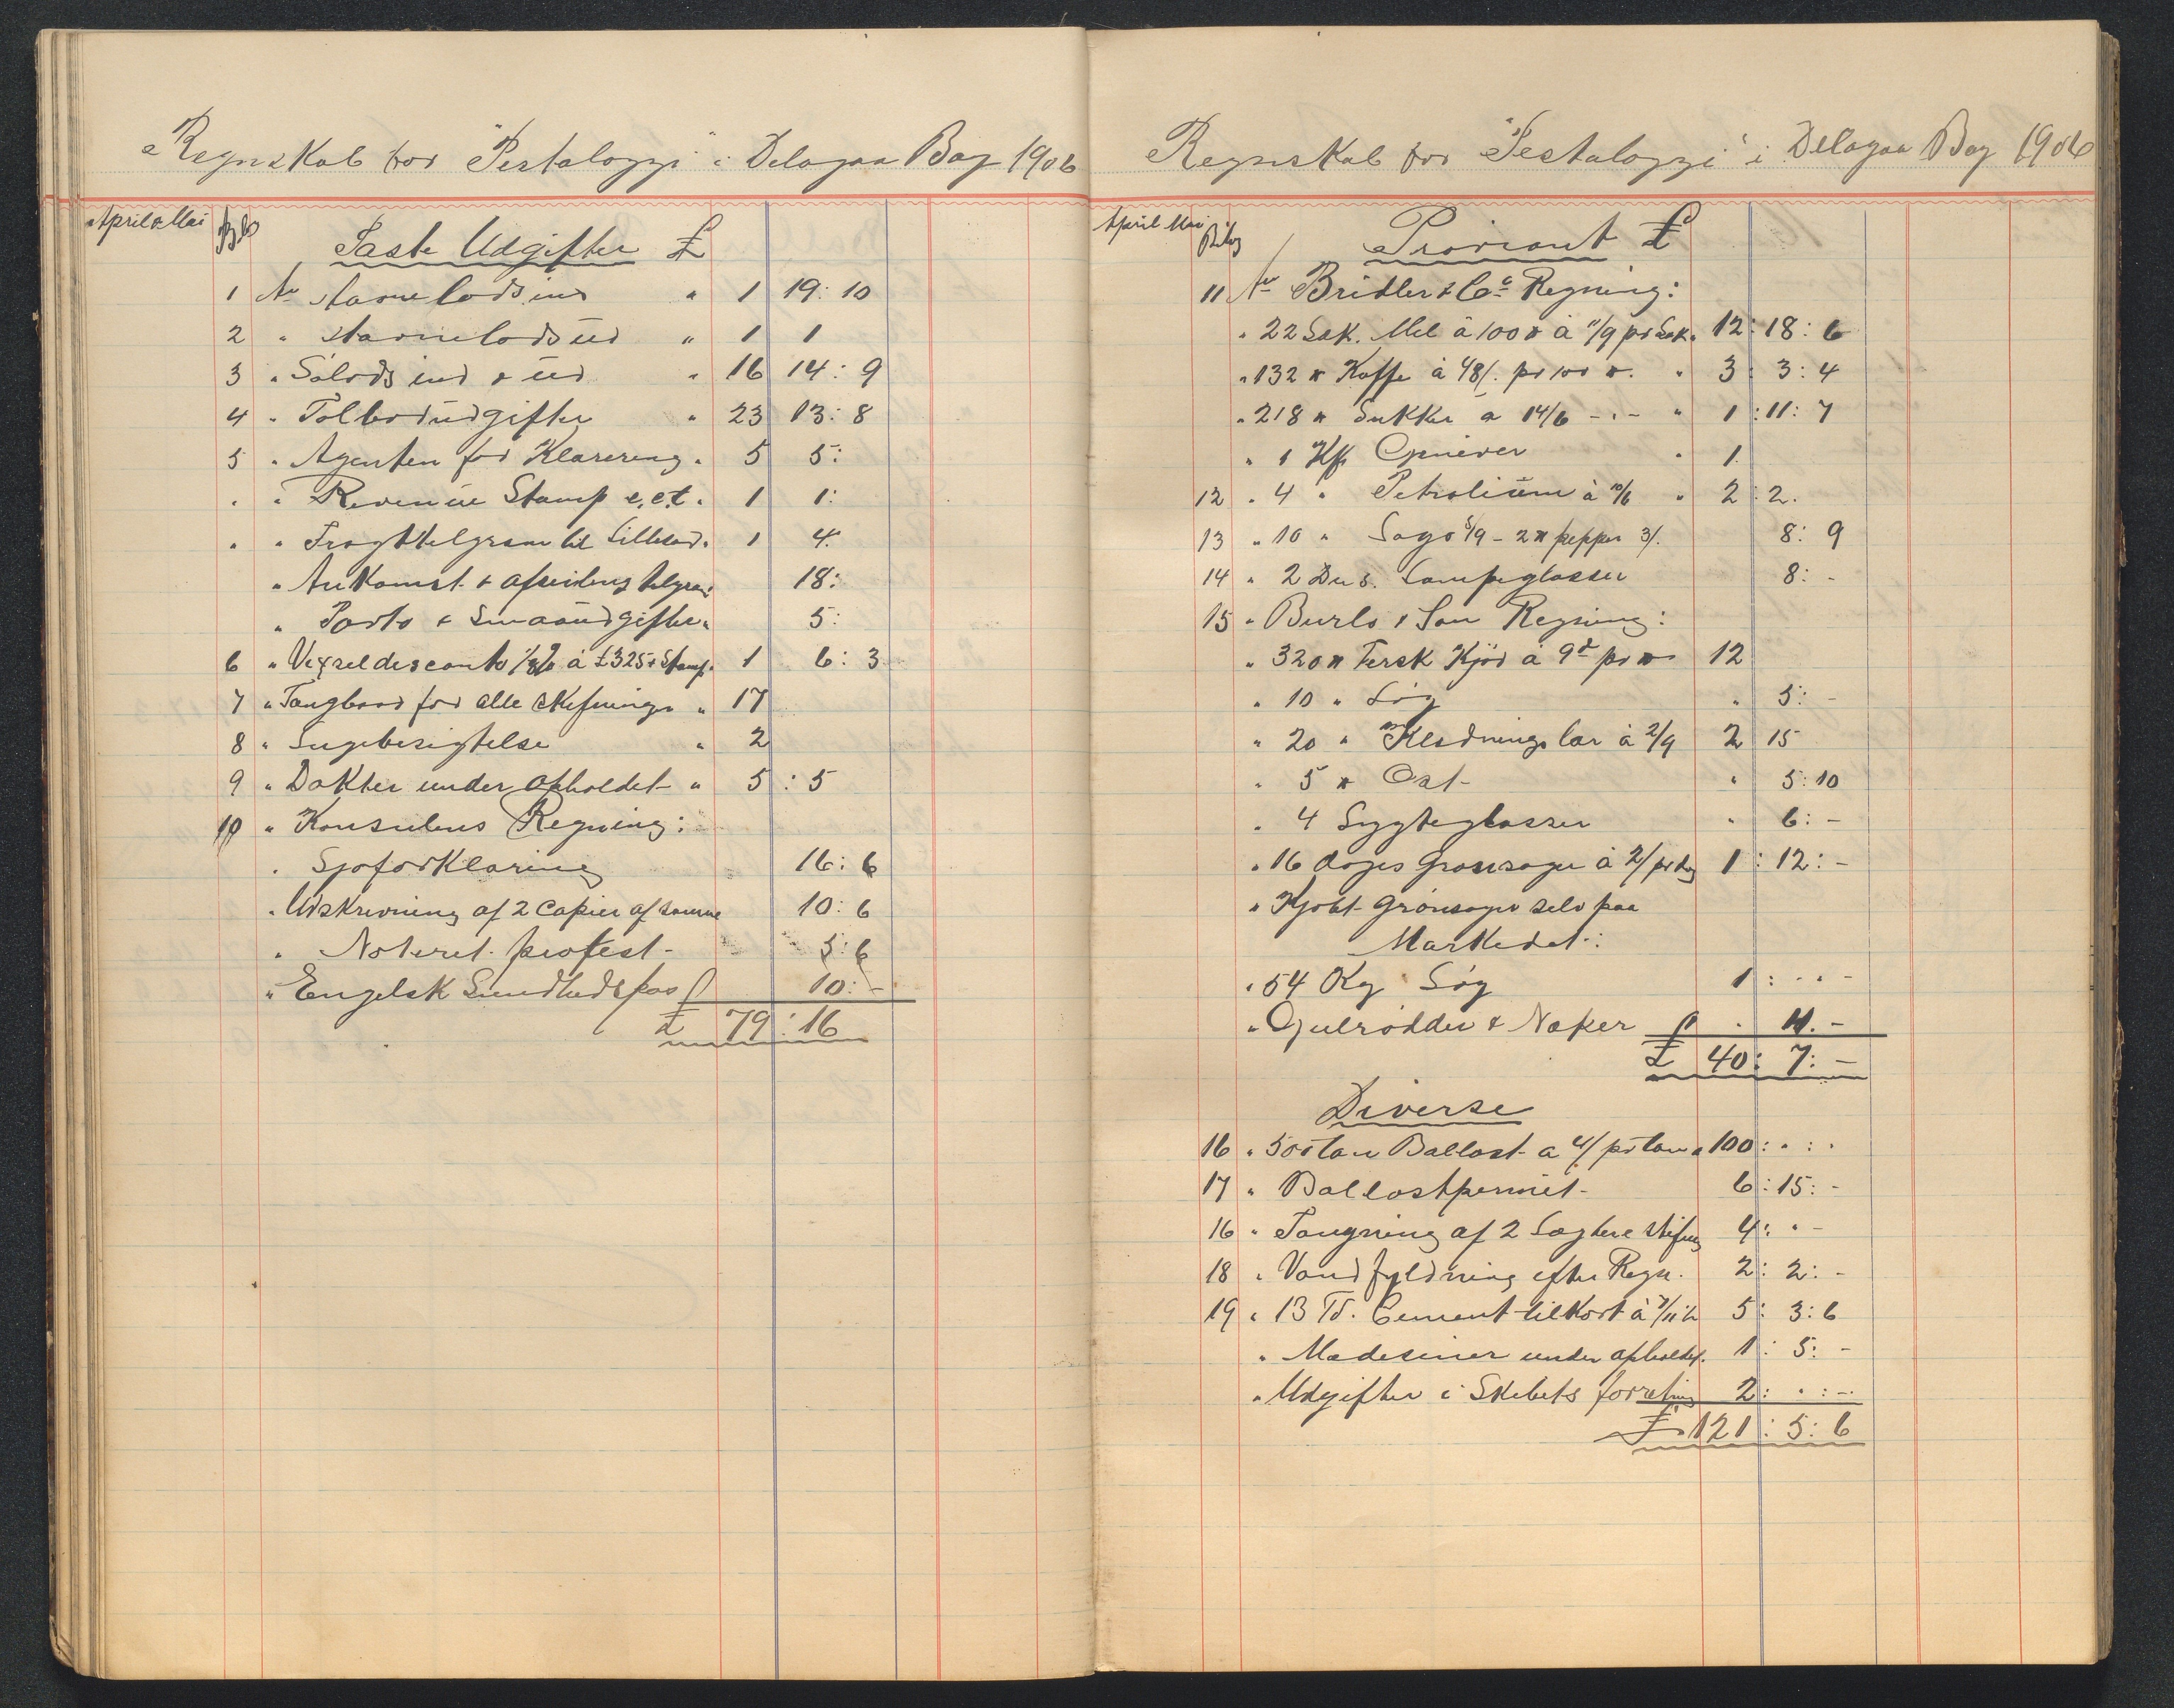 Regnskab for "Pestalozzi" i Delagoa Bay 1906
April & Mai
Faste Udgifter £
1 Av Havnelods ind " 1 19: 10
2 " Havnelods ud " 1 1
3 " Sølods ind & ud " 16 14: 9
4 " Tolbodudgifter " 23 13: 8
5 " Agenten for Klarering " 5 5:
" " Revenue Stamp e.c.t. " 1 1:
" " Fragttelgram til Lillesand " 1 4.
" Ankomst & afseilings telgram 18:
" Porto & Smaaudgifter " 5:
6 " Vexseldesconto à £325 & Stamp 1 6: 3
7 " Taugbaad for alle " 17
8 " Lugebesigtelse " 2
9 " Dokter under Opholdet " 5: 5
10 " Konsulens Regning:
" Sjøforklaring 16: 6
" Udskrivning af 2 Copier af samme 10: 6
" Noteret protest 5: 6
" Engelsk Sundhedspas 10: -
£ 79: 16
Regnskab for "Pestalozzi" i Delagoa Bay 1906
April Mai
Bilag
Proviant £
11 Av Bridler & Co Regning:
" 22 Sæk. Mel à 100 à 11/9 pr Sæk " 12: 18: 6
" 132 Kaffe à 48/. pr 100 " 3: 3: 4
" 218 Sukker à 14/6 - " - " 1: 11: 7
" 1 Ks Geniever " 1
12 " 4 " Petrolium à 10/6 " 2: 2.
13 " 10 " Sago 5/9 - 2 pepper 3/. 8: 9
14 " 2 Dus. Lampeglasser 8: -
15 " Burlo & Son Regning:
" 320 Fersk Kjød à 9d pr 12
" 10 " Løg " 5: -
" 20 " à 2/9 2 15
" 5 Ost " 5: 10
" 4 Lygteglasser " 6: -
" 16 dages grønsager à 2/ pr dag 1: 12: -
" Kjøbt grønsager selv paa
Markedet:
" 54 Kg Løg 1: " " -
" Gulrødder & Næper " 11. -
£ 40: 7: -
Diverse
16 " 500 tan Ballast à 4/ pr tan " 100: " : "
17 " Ballastpermit 6: 15: -
16 " Taugning af 2 Lægtere 4: " -
18 " Vandfyldning efter Regn. 2: 2: -
19 " 13 Td. Cement tilkort à 5: 3: 6
" Medesiner under opholdet. 1: 5: -
" Udgifter i Skibets forretning 2: " : -
£ 121: 5: 6